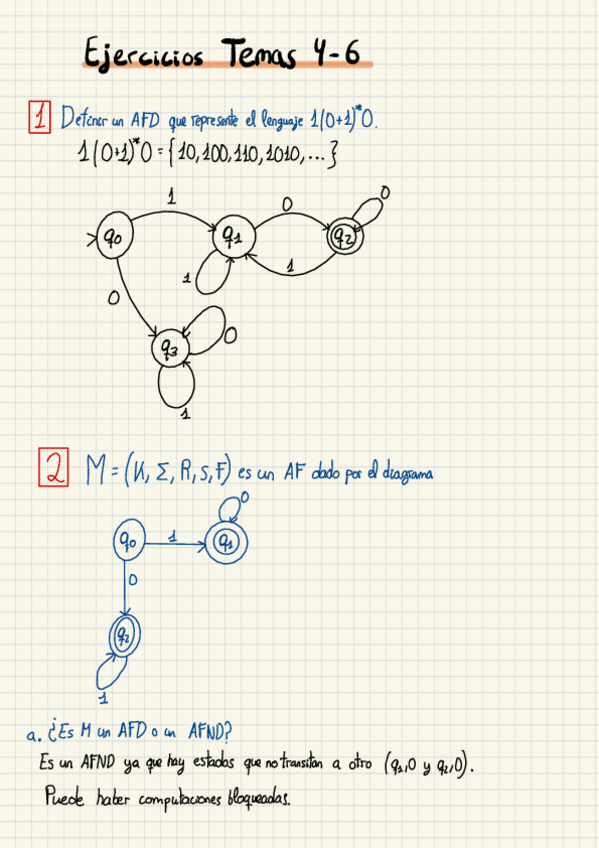 Ejercicios Temas 4-6
1 Definir un AFD que represente el lenguaje 1(0+1)*0.
1(0+1)*0 = {10, 100, 110, 1010, ...}
1
0
0
q0
q1
q2
1
1
0
q3
0
1
2 M = (K, Σ, R, s, F) es un AF dado por el diagrama
0
q0
1
q1
0
q2
1
a. ¿Es M un AFD o un AFND?
Es un AFND ya que hay estados que no transitan a otro (q1,0 y q2,0).
Puede haber computaciones bloqueadas.